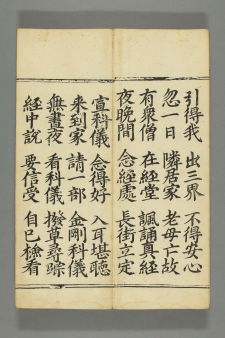 引得我 出三界 不得安心
忽一日 隣居家 老母亡故
有衆僧 在經堂 諷誦真經
夜晚間 念經處 長街立定
宣科儀 念得好 入耳堪聽
来到家 請一部 金剛科儀
無晝夜 看科儀 撥草尋踪
經中說 要信受 自己檢看